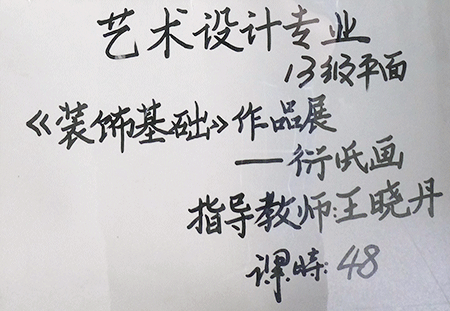 艺术设计专业
13级平面
《装饰基础》作品展
——衍纸画
指导教师:王晓丹
课时:48